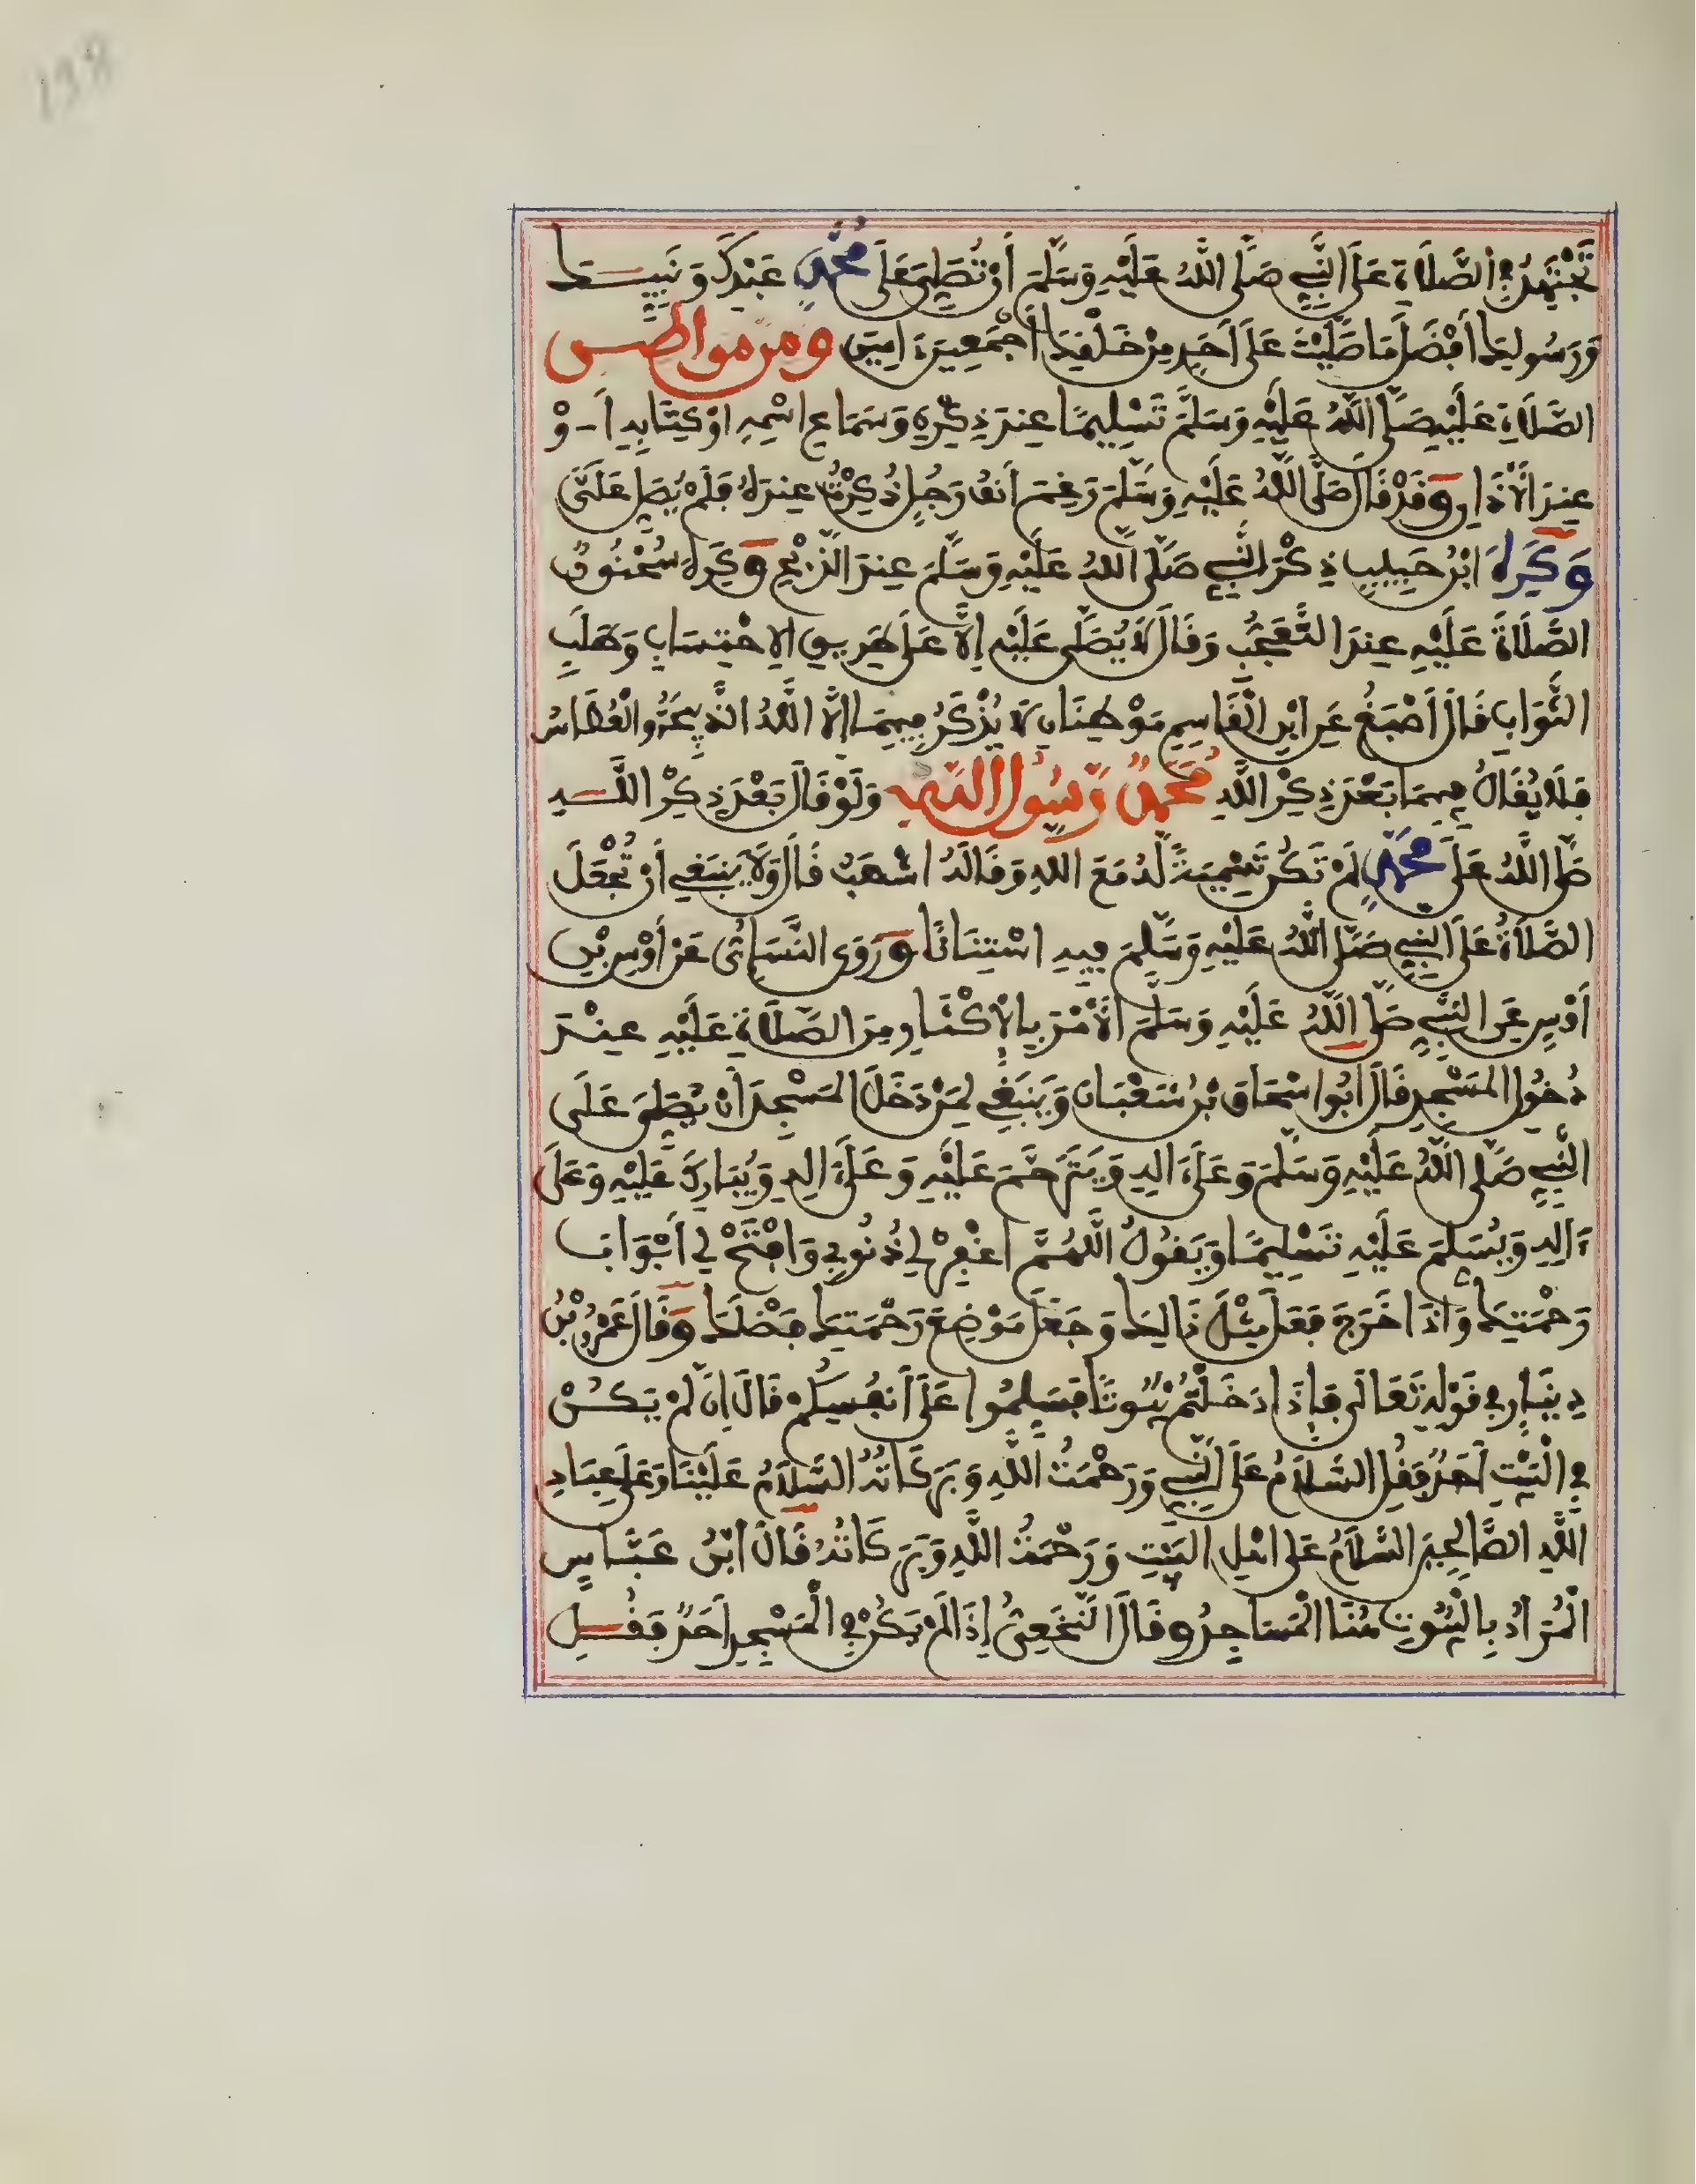 138
تَجْتَهِدُ فِي الصَّلَاةِ عَلَى النَّبِيِّ صَلَّى اللَّهُ عَلَيْهِ وَسَلَّمَ أَوْ تُصَلِّيَ عَلَى مُحَمَّدٍ عَبْدِكَ وَنَبِيِّكَ
وَرَسُولِكَ أَفْضَلَ مَا صَلَّيْتَ عَلَى أَحَدٍ مِنْ خَلْقِكَ أَجْمَعِينَ ءَامِينَ وَمِن مواطن
الصَّلَاةِ عَلَيْهِ صَلَّى اللَّهُ عَلَيْهِ وَسَلَّمَ تَسْلِيمًا عِنْدَ ذِكْرِهِ وَسَمَاعِ اسْمِهِ اوْ كِتَابِهِ أَوْ
عِنْدَ الْأَذَانِ وَقَدْ قَالَ صَلَّى اللَّهُ عَلَيْهِ وَسَلَّمَ رَغِمَ أَنْفُ رَجُلٍ ذُكِرْتُ عِنْدَهُ فَلَمْ يُصَلِّ عَلَيَّ
وَكَرِهَ ابْنُ حَبِيبٍ ذِكْرَ النَّبِيِّ صَلَّى اللَّهُ عَلَيْهِ وَسَلَّمَ عِنْدَ الذَّبْحِ وَكَرِهَ سُحْنُونٌ
الصَّلَاةَ عَلَيْهِ عِنْدَ التَّعَجُّبِ وَقَالَ لَا يُصَلَّى عَلَيْهِ إِلَّا عَلَى طَرِيقِ الِاحْتِسَابِ وَطَلَبِ
الثَّوَابِ قَالَ أَصْبَغُ عَنِ ابْنِ الْقَاسِمِ مَوْطِنَانِ لَا يُذْكَرُ فِيهِمَا إِلَّا اللَّهُ الذَّبِيحَةُ وَالْعُطَاسُ
فَلَا يُقَالُ فِيهِمَا بَعْدَ ذِكْرِ اللَّهِ مُحَمَّدٌ رَسُولُ اللَّهِ وَلَوْ قَالَ بَعْدَ ذِكْرِ اللَّهِ
صَلَّى اللَّهُ عَلَى مُحَمَّدٍ لَمْ تَكُنْ تَسْمِيَةً لَهُ مَعَ اللهِ وَقَالَهُ اشْهَبُ قَالَ وَلَا يَنْبَغِي أَنْ تُجْعَلَ
الصَّلَاةُ عَلَى النَّبِيِّ صَلَّى اللَّهُ عَلَيْهِ وَسَلَّمَ فِيهِ اسْتِنَانًا وَرَوَى النَّسَائِيُّ عَنْ أَوْسِ بْنِ
أَوْسٍ عَنِ النَّبِيِّ صَلَّى اللَّهُ عَلَيْهِ وَسَلَّمَ الْأَمْرَ بِالْإِكْثَارِ مِنَ الصَّلَاةِ عَلَيْهِ عِنْدَ
دُخُولِ الْمَسْجِدِ قَالَ أَبُو اسْحَاقَ بْنُ شَعْبَانَ وَيَنْبَغِي لِمَنْ دَخَلَ الْمَسْجِدَ أَنْ يُصَلِّيَ عَلَى
النَّبِيِّ صَلَّى اللَّهُ عَلَيْهِ وَسَلَّمَ وَعَلَى ءَالِهِ وَيَتَرَحَّمَ عَلَيْهِ وَعَلَى ءَالِهِ وَيُبَارِكَ عَلَيْهِ وَعَلَى
ءَالِهِ وَيُسَلِّمَ عَلَيْهِ تَسْلِيمًا وَيَقُولُ اللَّهُمَّ اغْفِرْ لِي ذُنُوبِي وَافْتَحْ لِي أَبْوَابَ
رَحْمَتِكَ وَإِذَا خَرَجَ فَعَلَ مِثْلَ ذَالِكَ وَجَعَلَ مَوْضِعَ رَحْمَتِكَ فَضْلَكَ وَقَالَ عَمْرُو بْنُ
دِينَارٍ فِي قَوْلِهِ تَعَالَى فَإِذَا دَخَلْتُمْ بُيُوتًا فَسَلِّمُوا عَلَى أَنْفُسِكُمْ قَالَ إِنْ لَمْ يَكُنْ
فِي الْبَيْتِ أَحَدٌ فَقُلِ السَّلَامُ عَلَى النَّبِيِّ وَرَحْمَتُ اللَّهِ وَبَرَكَاتُهُ السَّلَامُ عَلَيْنَا وَعَلَى عِبَادِ
اللَّهِ الصَّالِحِينَ السَّلَامُ عَلَى اهْلِ الْبَيْتِ وَرَحْمَتُ اللَّهِ وَبَرَكَاتُهُ قَالَ ابْنُ عَبَّاسٍ
الْمُرَادُ بِالْبُيُوتِ هُنَا الْمَسَاجِدُ وَقَالَ النَّخَعِيُّ إِذَا لَمْ يَكُنْ فِي الْمَسْجِدِ أَحَدٌ فَقُلِ